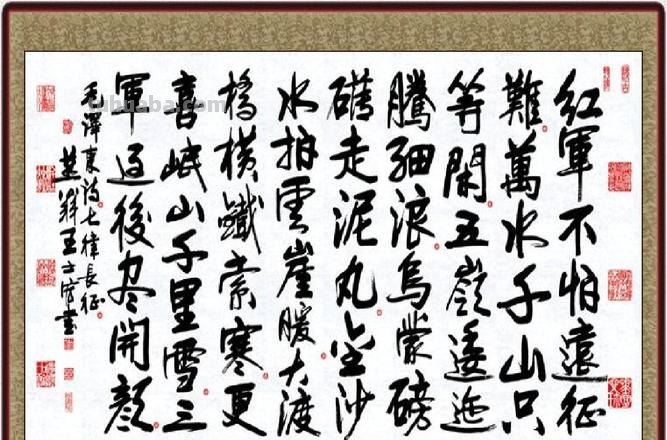 紅軍不怕遠征
難萬水千山只
等閑五嶺逶迤
騰細浪烏蒙磅
礴走泥丸金沙
水拍雲崖暖大渡
橋橫鐵索寒更
喜岷山千里雪三
軍過後盡開顏
毛澤東詩七律長征
王士書
tuhuaba.com